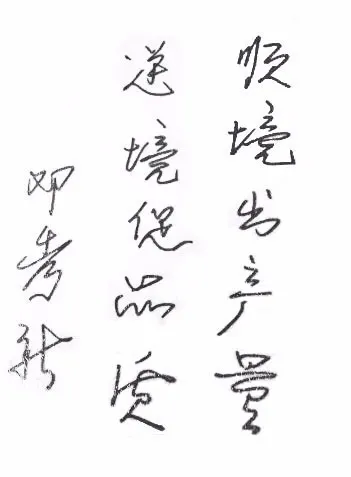 顺境出产量
逆境促品质
邓秀新